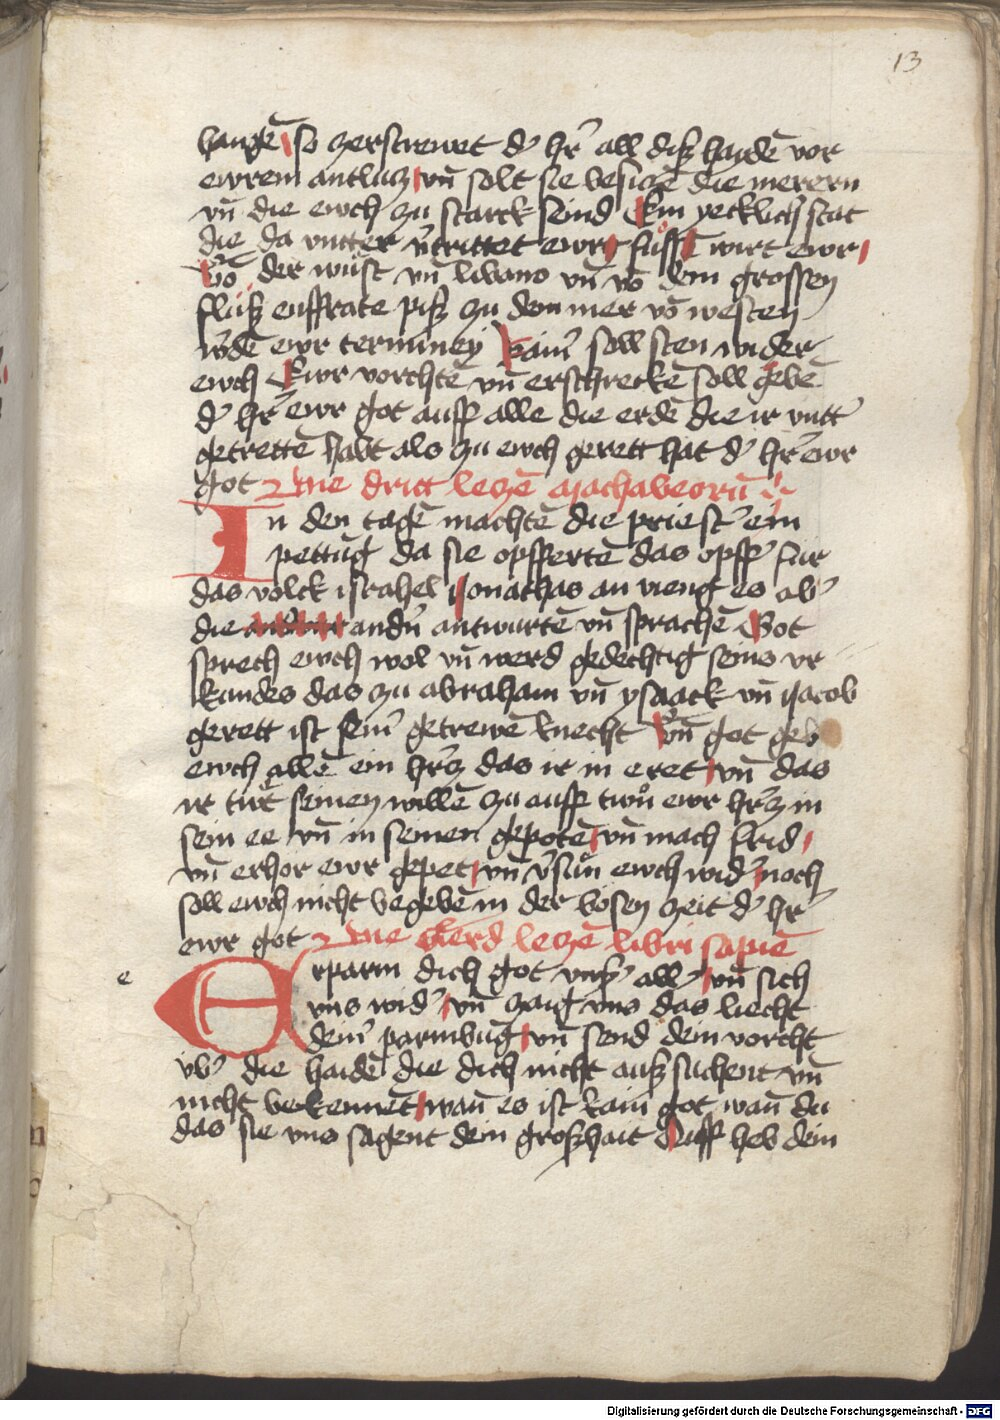 13
hangē so zerstrewet dʾ hʾr all diß haidē vor
ewrem antlucz vn̄ solt sie besiczē die merern
vn̄ die ewch zu starck seind Ein yecklich stat
die da vntter v̄trittet ewr fuͦß wirt ewr
Vō der wuͤst vn̄ libano vn̄ vō dem grossen
fluß euffrate piß zu dem mer vō westen
w̄dē ewr terminey Kainʾ soll sten wider
ewch Ewr vorchtē vn̄ erschreckē soll gebē
dʾ hʾr ewr got auff alle die erdē die ir vnttʾ
getrettē habt als zu ewch gerett hat dʾ hʾr ewr
got Die dritt leczē Machabeorū
In den tagē machtē die priestʾ ein
pettūg da sie opffertē das opffʾ fur
das volck israhel Jonathas an vieng es abʾ
die andʾn antwurtē vn̄ sprachē Got
sprech ewch wol vn̄ werd gedechtig seins vr
kundes das zu abraham vn̄ ysaack vn̄ Jacob
gerett ist seinʾ getrewē knecht Vn̄ got geb
ewch allē ein hʾcz das ir in eret vn̄ das
ir tuͤt seinen willē zu auff twū ewr hʾcz in
sein ee vn̄ in seinen gepotē vn̄ mach frid
vn̄ erhor ewr gepet vn̄ v̄suͤn ewch widʾ noch
soll ewch nicht begebē in der bosen zeit dʾ hʾr
ewr got Die vierd leczē libri sapiē
e
Erparm dich got vnsʾ allʾ vn̄ sich
vns widʾ vn̄ zaig vns das liecht
deinʾ parmbūg vn̄ send dein vorcht
vbʾ die haidē die dich nicht auß suchent vn̄
nicht bekennēt wan̄ es ist kain got wan̄ du
das sie vns sagent dein großhait Auff heb dein
Digitalisierung gefördert durch die Deutsche Forschungsgemeinschaft - DFG